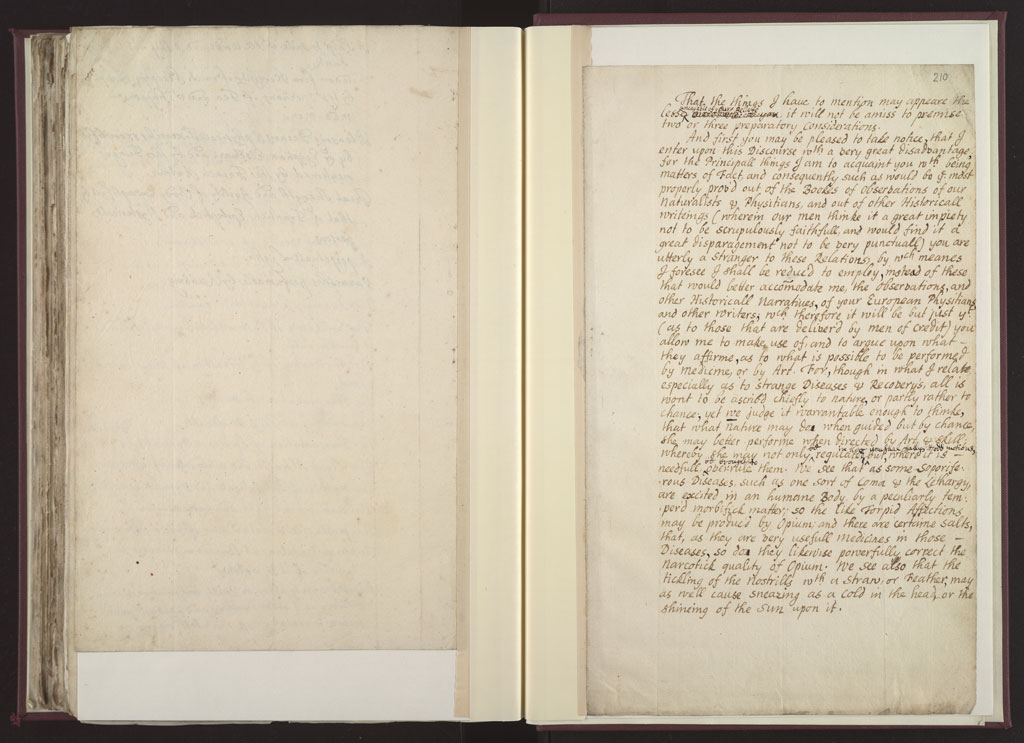 210
That the things I have to mention may appeare the
lesse it will not be amiss to premise
two or three preparatory Considerations.
And first you may be pleased to take notice, that I
enter upon this Discourse wth a very great disadvantage,
for the Principall things I am to acquaint you wth being
matters of Fact, and consequently such as would be
properly prov'd out of the Bookes of Observations of our
Naturalists & Physitians, and out of other Historicall
writeings (wherein our men thinke it a great impiety
not to be scrupulously faithfull, and would find it a
great disparagement not to be very punctuall) you are
utterly a stranger to these Relations, by wch meanes
I foresee I shall be reduc'd to employ, instead of these
that would better accomodate me, the Observations, and
other Historicall Narratives, of your European Physitians
and other writers; wch therefore it will be but just yt
(as to those that are deliverd by men of Credit) you
allow me to make use of, and to argue upon what –
they affirme, as to what is possible to be performed
by medicine, or by Art. For, though in what I relate
especially as to strange Diseases & Recovery's, all is
wont to be ascrib'd cheefly to nature, or partly rather to
chance, yet we judge it warrantable enough to thinke,
that what nature may do when guided but by chance,
she may better performe when directed by Art & skill;
whereby she may not only regulate, but, where it is –
needfull, them. We see that as some soporife-
-rous Diseases, such as one sort of Coma & the Lethargy,
are excited in an humane Body by a peculiarly tem-
-perd morbifick matter; so the like Torpid Affections
may be produc'd by Opium; and there are certaine salts,
that, as they are very usefull medicines in those –
Diseases, so do they likewise powerfully correct the
Narcotick quality of Opium. We see also that the
tickling of the Nostrills wth a straw, or Feather, may
as well cause sneazing as a Cold in the head, or the
shineing of the Sun upon it.